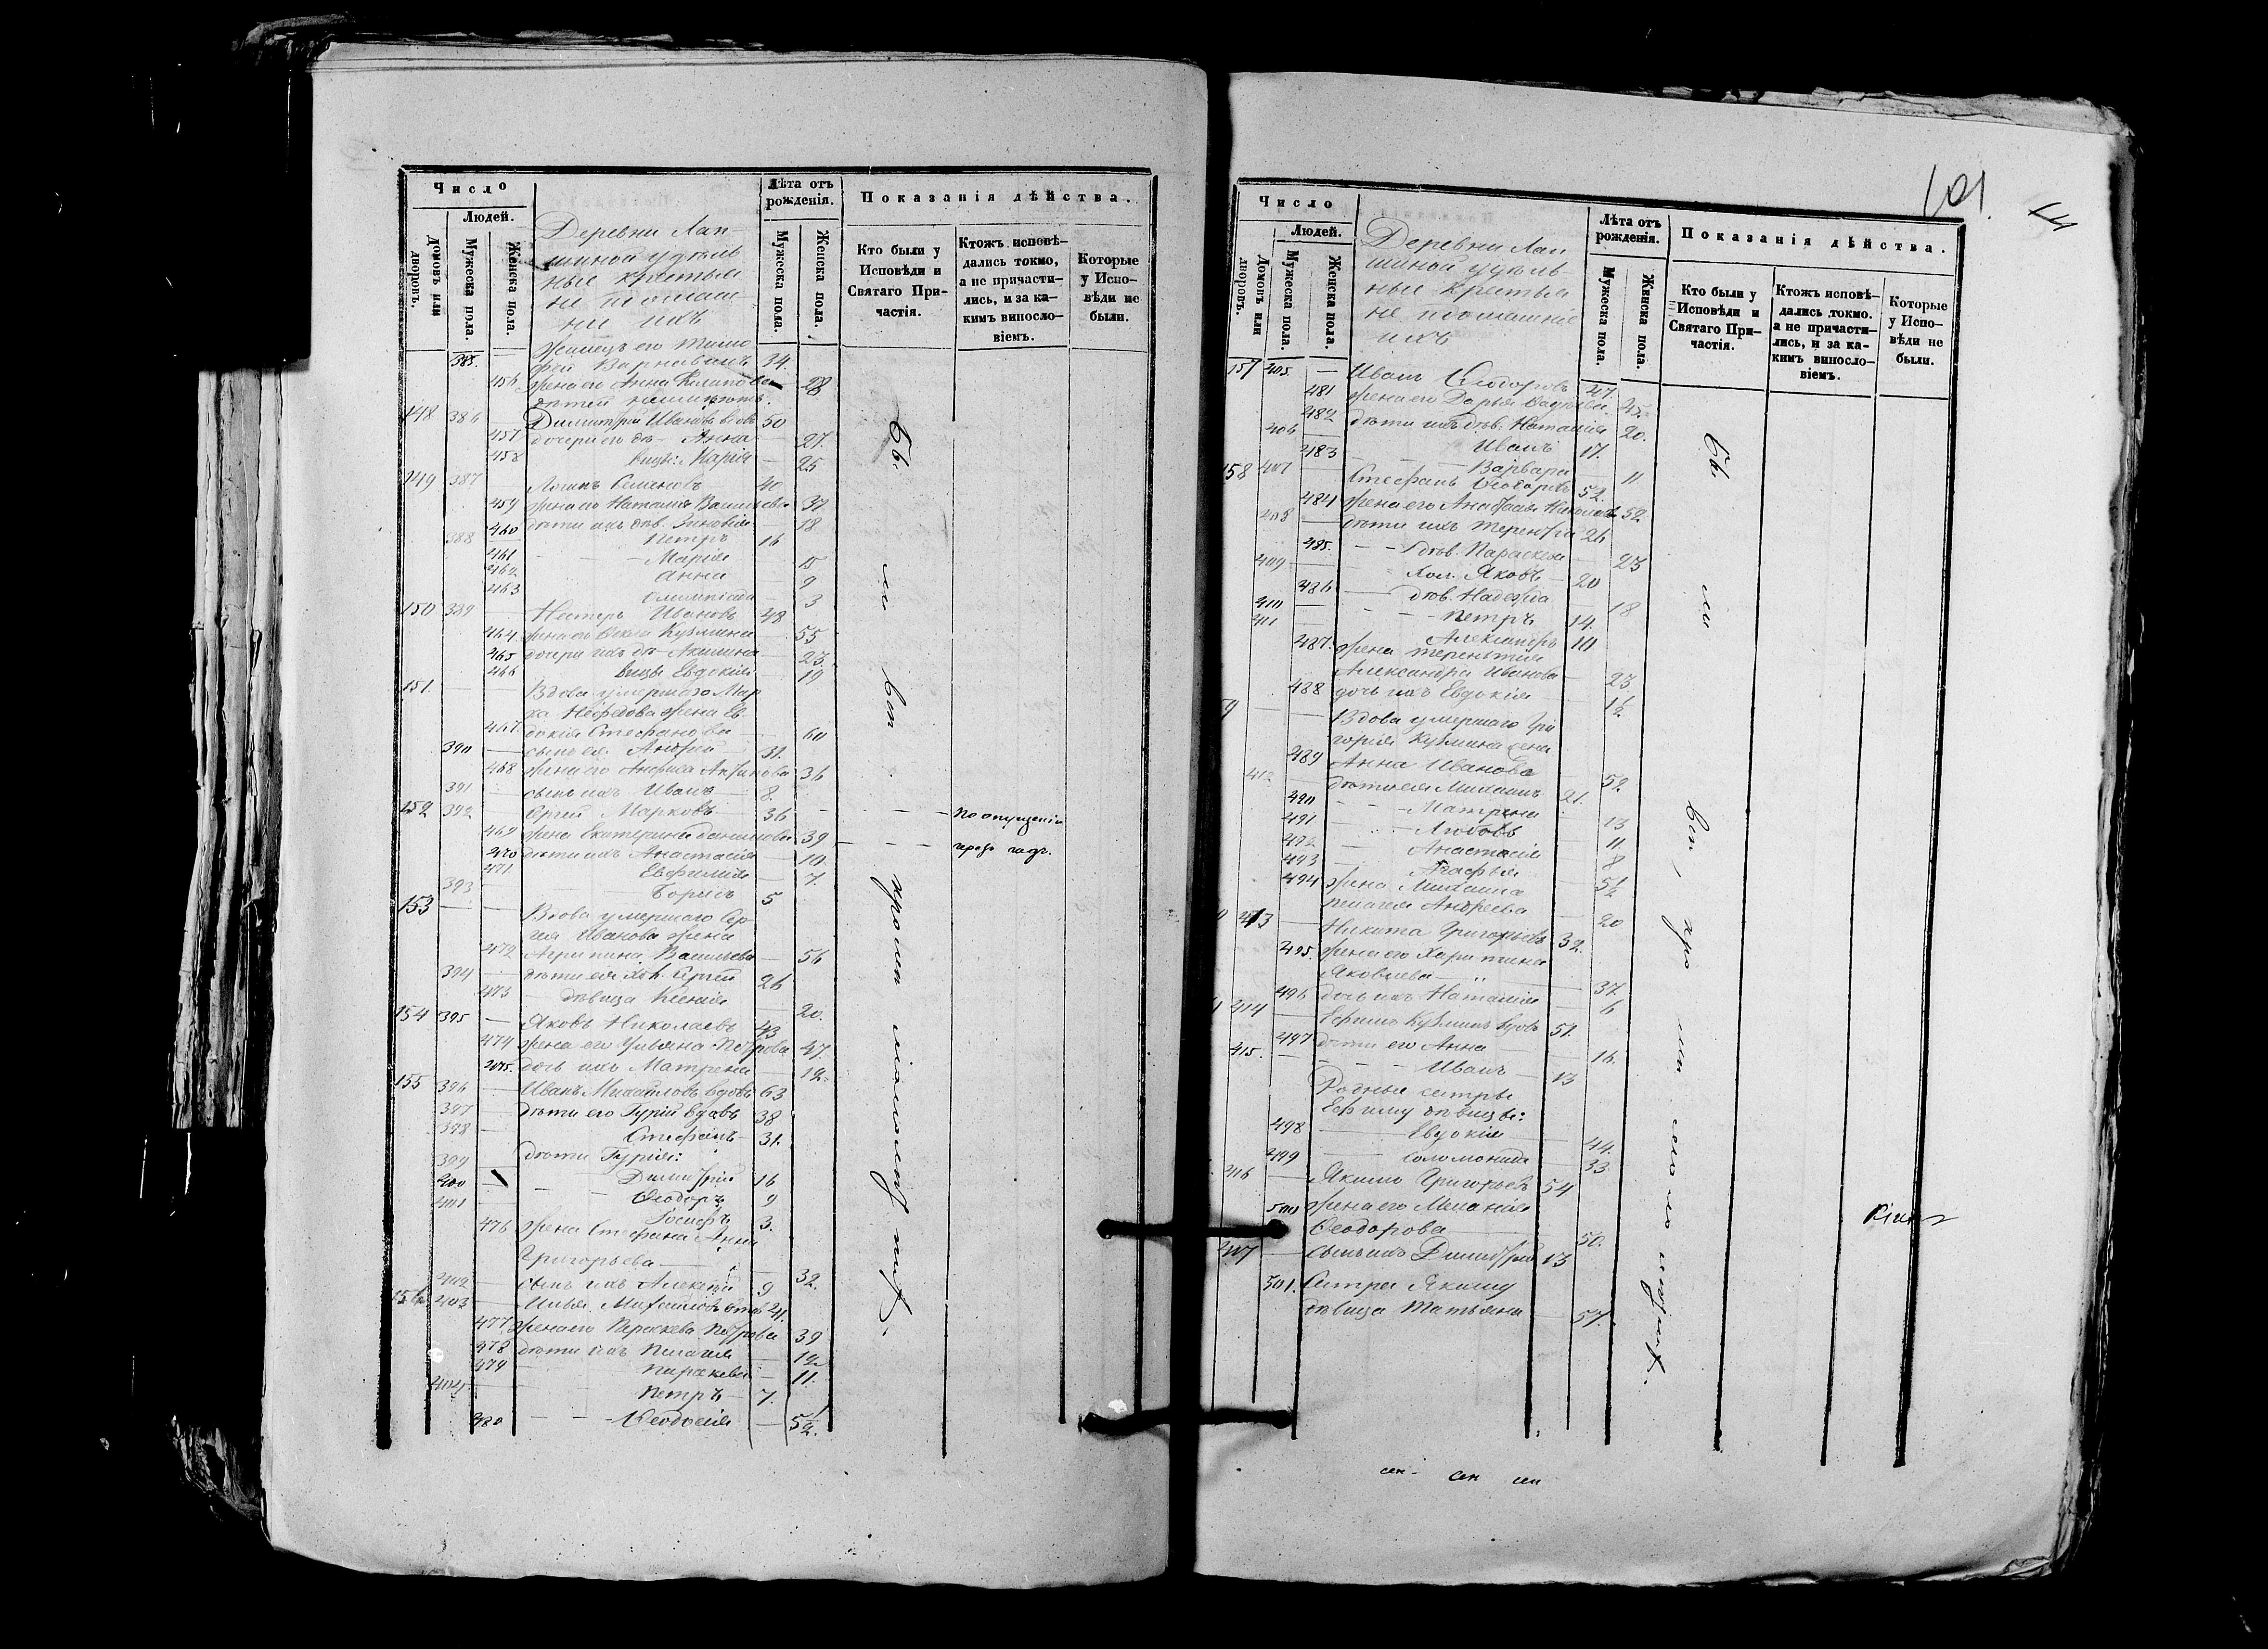 Число
Людей.
Домовъ или дворовъ.
Мужеска пола.
Женска пола.
Деревни Лап
шиной удѣль
ные крестья
не и домаш
ни ихъ
Лѣта отъ рожденія.
Мужеска пола.
Женска пола.
Показанія дѣйства.
Кто были у Исповѣди и Святаго Причастія.
Ктожъ исповѣдались токмо, а не причастились, и за какимъ винословіемъ.
Которые у Исповѣди не были.
385. — его Тимо
фей 34.
456 жена его Анна 28
дѣтей неимѣютъ.
148 386 — Димитрій Ивановъ вдовъ 50
457 дочери его дѣ- Анна 27.
458 вицы: Марія 25
149 387 Логинъ Семеновъ 40
459 жена его Наталія Васильева 37
460 дѣти ихъ дѣв. Зиновія 18
388 Петръ 16
461 Марія 15
462 Анна 9
463 Олимпіада 3
150 389 Нестеръ Ивановъ 48
464 жена его Ѳекла Кузмина 55
465 дочери ихъ дѣ- Акилина 23.
466 вицы Евдокія 19
151. Вдова умершаго Мар
ка Нефедова жена Ев
467 докія Стефанова 60
390 сынъ ея Андрей 31.
468 жена его Анфиса 36
391 сынъ ихъ Иванъ 8.
152 392 Сергій Марковъ 36 По опущенію
469 жена Екатерина 39 — — —
470 дѣти ихъ Анастасія 10
471 Евфимія 7.
393 Борисъ 5
153 Вдова умершаго Сер
гея Иванова жена
472 Агрипина Васильева 56
394 дѣти ея хол. Сергій 26
473 дѣвица Ксенія 20.
154 395 Яковъ Николаевъ 43
474 жена его Ульяна Петрова 47.
475. дочь ихъ Матрена 12.
155 396 Иванъ Михайловъ вдовъ 63
397 дѣти его Гурій вдовъ 38
398 Стефанъ 31.
399 дѣти Гурія:
400 Димитрій 16
401 Ѳеодоръ 9
Іосифъ 3.
476 жена Стефана Анна
Григорьева 32.
402 сынъ ихъ Алексѣй 9
156 403 Илья Михайловъ 41.
477 жена его Параскева Петрова 39
478 дѣти ихъ Пелагея 12
479 Параскева 11.
404 Петръ 7.
480 Ѳеодосія 5 1/2.
Бы ли всѣ кромѣ
101.
Число
Людей.
Домовъ или дворовъ.
Мужеска пола.
Женска пола.
Деревни Лап
шиной удѣль
ные крестья
не и домашніе
ихъ
Лѣта отъ рожденія.
Мужеска пола.
Женска пола.
Показанія дѣйства.
Кто были у Исповѣди и Святаго Причастія.
Ктожъ исповѣдались токмо. а не причастились, и за какимъ винословіемъ.
Которые у Исповѣди не были.
157 405. — Иванъ Ѳеодоровъ 47.
481 жена его Дарья 45.
482 дѣти ихъ дѣв. Наталія 20.
406 Иванъ 17.
483 Варвара 11
158 407 Стефанъ Ѳеодоровъ 52.
484 жена его Николаева 52.
408 дѣти ихъ Терентій 26
485. дѣв. Параскева 23
409 хол. Яковъ 20
486 дѣв. Надежда 18
410 Петръ 14.
411 Александръ 10
487. жена Терентія
Александра Иванова 23
488 дочь ихъ Евдокія 1 1/2
9 Вдова умершаго Гри
горія Кузмина жена
489 Анна Иванова 52.
412 дѣти ея Михаилъ 21.
490 Матрена 13
491 Любовь 11
492 Анастасія 8
493 Агафья 5 1/2
494 жена Михаила
Пелагея Андреева 20
413 Никита Григорьевъ 32.
495. жена его Харитина
Яковлева 37.
496 дочь ихъ Наталія 6
414 Ефимъ Кузминъ вдовъ 51.
497 дѣти его Анна 16.
415. Иванъ 13
Родные сестры
Ефиму дѣвицы:
498 Евдокія 44.
499 Соломонида 33.
416 Якимъ Григорьевъ 54
500 жена его Меланія
Ѳеодорова 50.
417 сынъ ихъ Димитрій 13
501. Сестра Якиму
дѣвица Татьяна 57.
Бы ли всѣ, кро мѣ